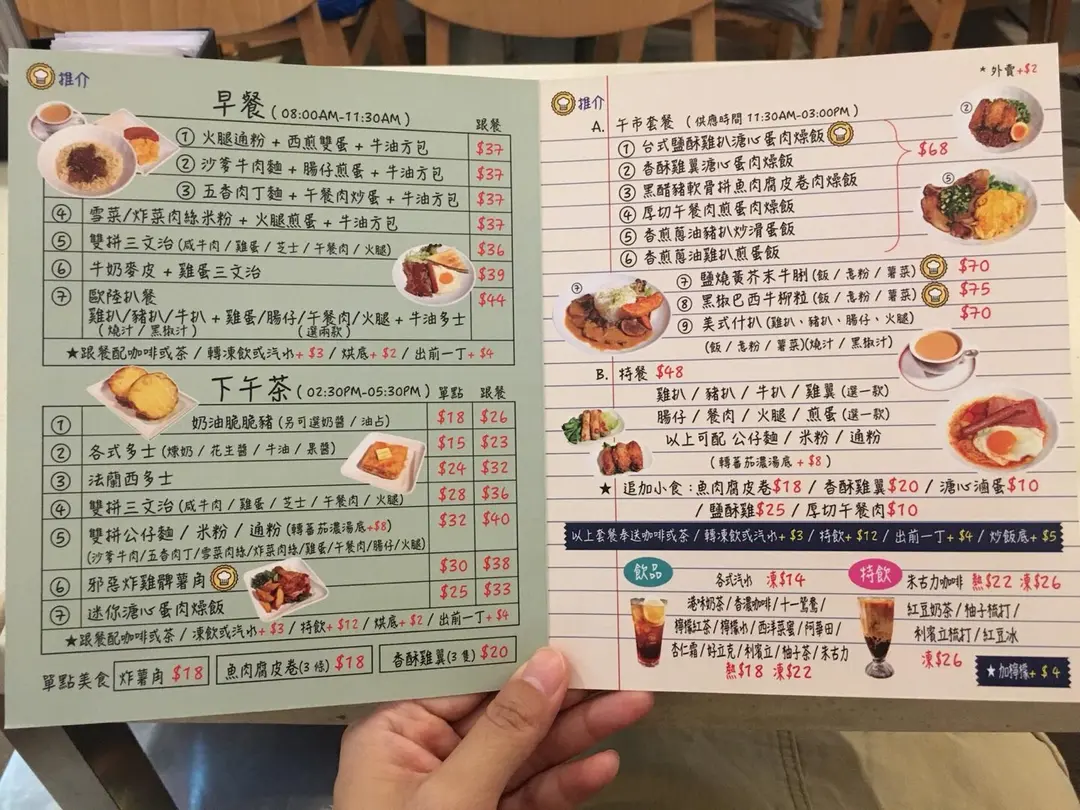 推介
早餐 (08:00AM-11:30AM)
跟餐
① 火腿通粉 + 西煎雙蛋 + 牛油方包 $37
② 沙爹牛肉麵 + 腸仔煎蛋 + 牛油方包 $37
③ 五香肉丁麵 + 午餐肉炒蛋 + 牛油方包 $37
④ 雪菜/炸菜肉絲米粉 + 火腿煎蛋 + 牛油方包 $37
⑤ 雙拼三文治 (咸牛肉 / 雞蛋 / 芝士 / 午餐肉 / 火腿) $36
⑥ 牛奶麥皮 + 雞蛋三文治 $39
⑦ 歐陸扒餐 $44
雞扒/豬扒/牛扒 + 雞蛋/腸仔/午餐肉/火腿 + 牛油多士
(燒汁 / 黑椒汁) (選兩款)
★跟餐配咖啡或茶 / 轉凍飲或汽水+$3 / 烘底+$2 / 出前一丁+$4
下午茶 (02:30PM-05:30PM) 單點 跟餐
① 奶油脆脆豬 (另可選奶醬 / 油占) $18 $26
② 各式多士 (煉奶 / 花生醬 / 牛油 / 果醬) $15 $23
③ 法蘭西多士 $24 $32
④ 雙拼三文治 (咸牛肉 / 雞蛋 / 芝士 / 午餐肉 / 火腿) $28 $36
⑤ 雙拼公仔麵 / 米粉 / 通粉 (轉蕃茄濃湯底+$8) $32 $40
(沙爹牛肉/五香肉丁/雪菜肉絲/炸菜肉絲/雞蛋/午餐肉/腸仔/火腿)
⑥ 邪惡炸雞髀薯角 $30 $38
⑦ 迷你溏心蛋肉燥飯 $25 $33
★跟餐配咖啡或茶 / 凍飲或汽水+$3 / 特飲+$12 / 烘底+$2 / 出前一丁+$4
單點美食 炸薯角 $18 魚肉腐皮卷(3條) $18 香酥雞翼(3隻) $20
★外賣+$2
推介
A. 午市套餐 (供應時間 11:30AM-03:00PM)
① 台式鹽酥雞扒溏心蛋肉燥飯
② 香酥雞翼溏心蛋肉燥飯
③ 黑醋豬軟骨拼魚肉腐皮卷肉燥飯
④ 厚切午餐肉煎蛋肉燥飯
⑤ 香煎蔥油豬扒炒滑蛋飯
⑥ 香煎蔥油雞扒煎蛋飯
$68
⑦ 鹽燒黃芥末牛脷 (飯 / 意粉 / 薯菜) $70
⑧ 黑椒巴西牛柳粒 (飯 / 意粉 / 薯菜) $75
⑨ 美式什扒 (雞扒、豬扒、腸仔、火腿) $70
(飯 / 意粉 / 薯菜)(燒汁 / 黑椒汁)
B. 特餐 $48
雞扒 / 豬扒 / 牛扒 / 雞翼 (選一款)
腸仔 / 餐肉 / 火腿 / 煎蛋 (選一款)
以上可配 公仔麵 / 米粉 / 通粉
(轉蕃茄濃湯底+$8)
★ 追加小食:魚肉腐皮卷$18 / 香酥雞翼$20 / 溏心滷蛋$10
/ 鹽酥雞$25 / 厚切午餐肉$10
以上套餐奉送咖啡或茶 / 轉凍飲或汽水+$3 / 特飲+$12 / 出前一丁+$4 / 炒飯底+$5
飲品
各式汽水 凍$14
港式奶茶 / 香濃咖啡 / 十一鴛鴦 /
檸檬紅茶 / 檸檬水 / 西洋菜蜜 / 阿華田 /
杏仁霜 / 好立克 / 利賓立 / 柚子茶 / 朱古力
熱$18 凍$22
特飲
朱古力咖啡 熱$22 凍$26
紅豆奶茶 / 柚子梳打 /
利賓立梳打 / 紅豆冰
凍$26
★加檸檬+$4